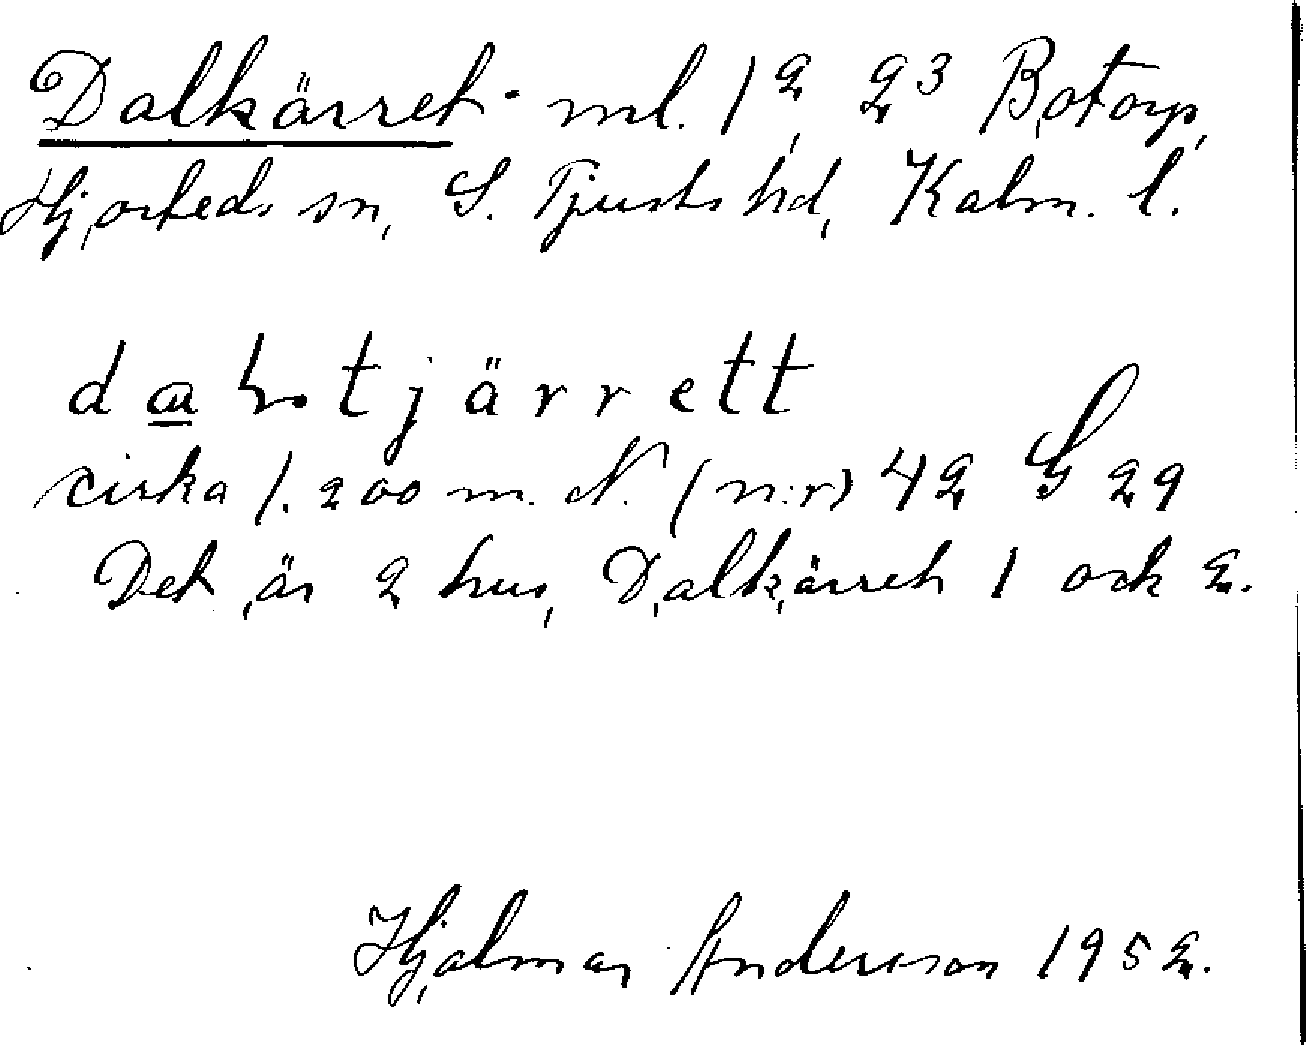 Dalkärret ml. 1², 2³ Botorp,
Hjorteds sn, S. Tjusts hd, Kalm. l.
tjärrett
cirka 1.200 m. N. (n:r) 42 G 29
Det är 2 hus, Dalkärret 1 och 2.
Hjalmar Andersson 1952.